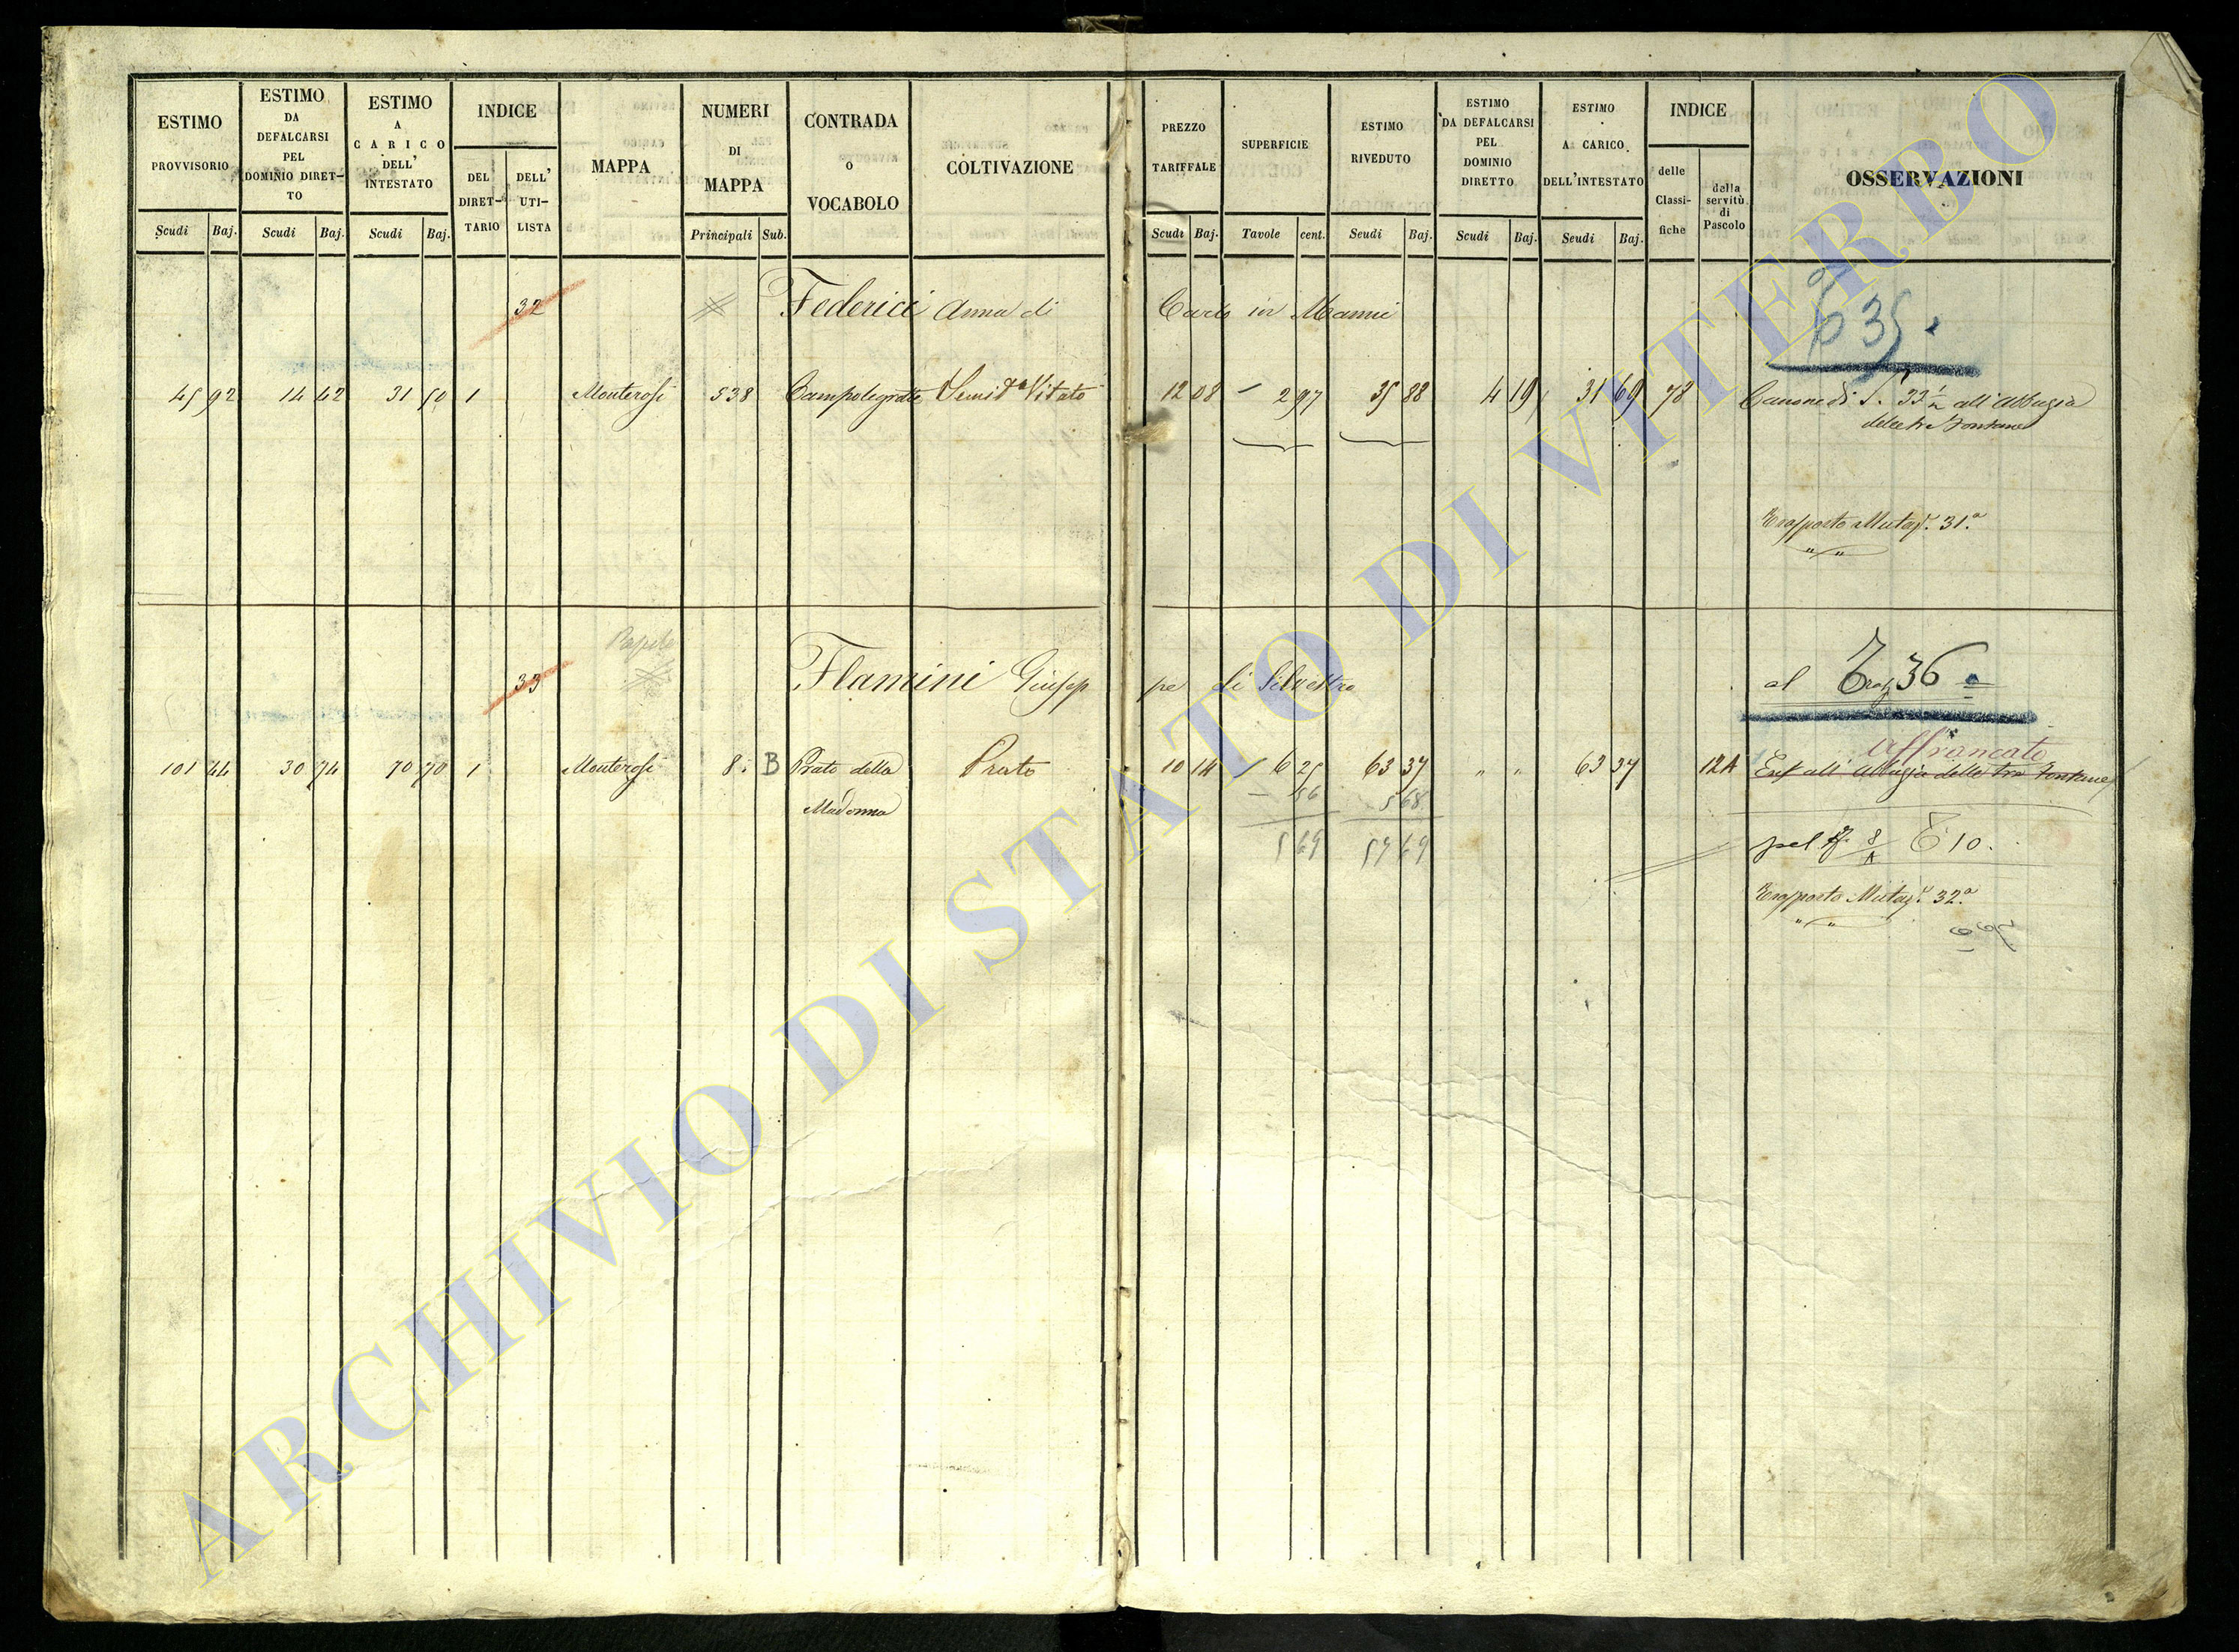 ESTIMO PROVVISORIO
Scudi Baj.
ESTIMO DA DEFALCARSI PEL DOMINIO DIRETTO
Scudi Baj.
ESTIMO A CARICO DELL' INTESTATO
Scudi Baj.
INDICE
DEL DIRETTARIO
DELL' UTILISTA
MAPPA
NUMERI DI MAPPA
Principali Sub.
CONTRADA O VOCABOLO
COLTIVAZIONE
PREZZO TARIFFALE
Scudi Baj.
SUPERFICIE
Tavole cent.
ESTIMO RIVEDUTO
Scudi Baj.
ESTIMO DA DEFALCARSI PEL DOMINIO DIRETTO
Scudi Baj.
ESTIMO A CARICO DELL'INTESTATO
Scudi Baj.
INDICE
delle Classifiche
della servitù di Pascolo
OSSERVAZIONI
32 Federici Anna di Carlo in
635.
45 92 14 42 31 50 1 Monterosi 538 Vitato 12 08 2 97 35 88 4 19 31 69 78 Canone di S. 33 1/2 all' Abbazia
delle tre Fontane
Trasporto Mutaz. 31.a
33 Flamini Giuseppe di Silvestro
al 36
affrancato
101 44 30 74 70 70 1 Monterosi 8. B Prato della Prato 10 14 6 25 63 37 " " 63 37 12A Enf all' Abbazia delle tre Fontane
Madonna 56 5 68
5 69 57 69
pel 8/A 10.
Trasporto Mutaz. 32.a
ARCHIVIO DI STATO DI VITERBO